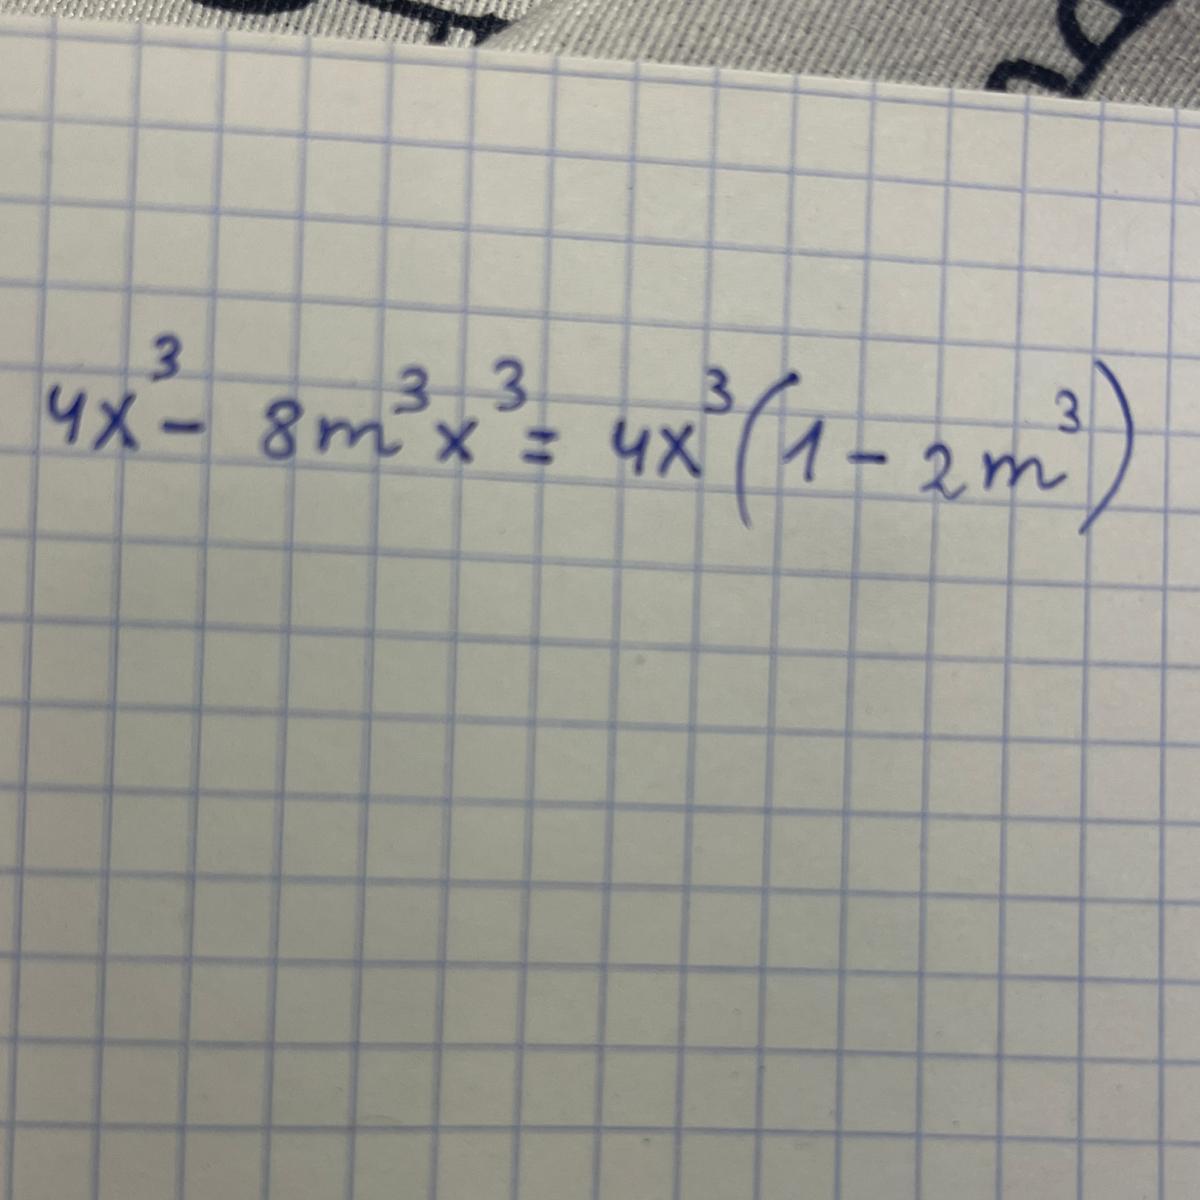 4x³ - 8m³x³ = 4x³(1 - 2m³)